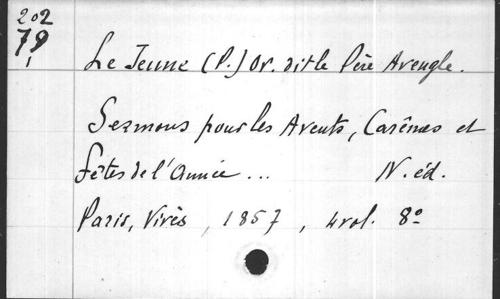 202
79
1
Le Jeune (P.) Or. dit le Père Aveugle.
Sermons pour les Avents, Carêmes et
fêtes de l'Année ... N. éd.
Paris, Vivès, 1857, 4 vol. 8º